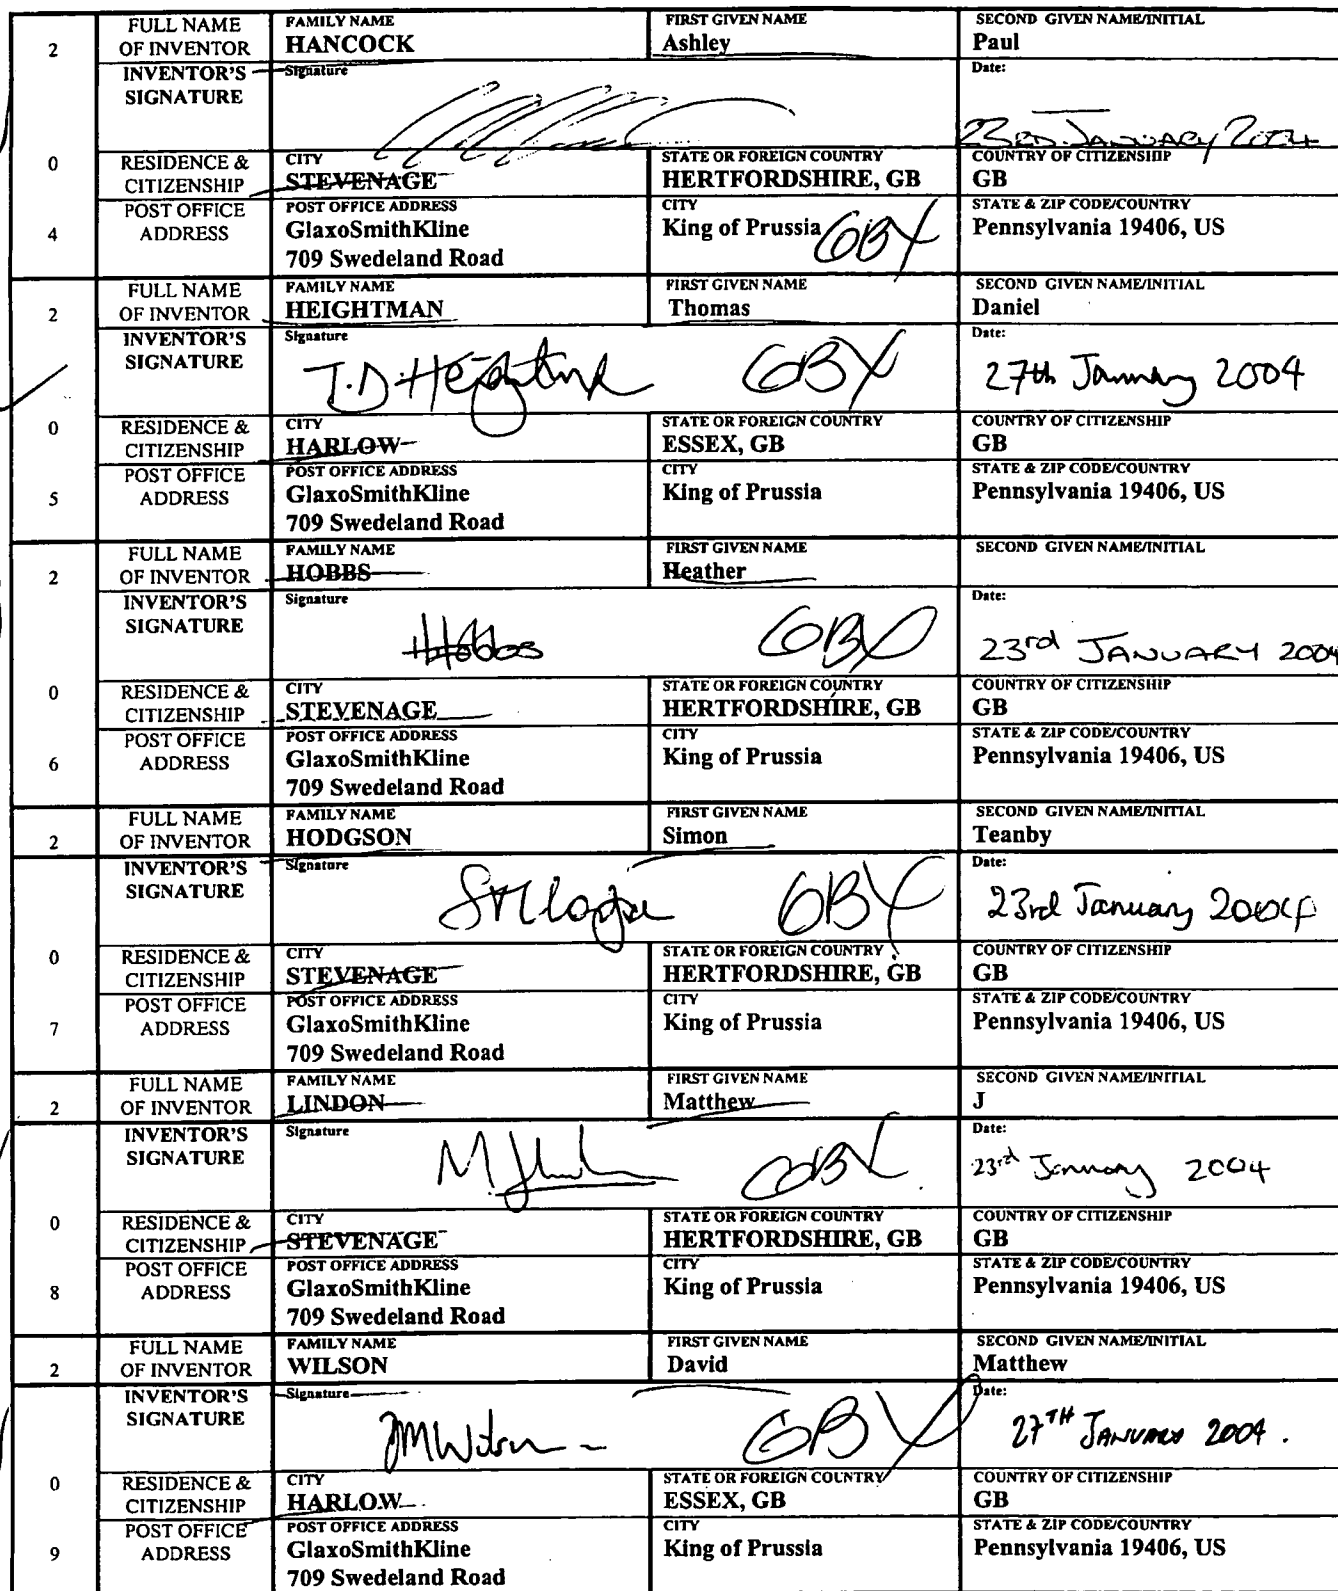 2 FULL NAME OF INVENTOR FAMILY NAME HANCOCK FIRST GIVEN NAME Ashley SECOND GIVEN NAME/INITIAL Paul
INVENTOR'S SIGNATURE Signature Date: 23RD JANUARY 2004
0 RESIDENCE & CITIZENSHIP CITY STEVENAGE STATE OR FOREIGN COUNTRY HERTFORDSHIRE, GB COUNTRY OF CITIZENSHIP GB
4 POST OFFICE ADDRESS POST OFFICE ADDRESS GlaxoSmithKline 709 Swedeland Road CITY King of Prussia GBX STATE & ZIP CODE/COUNTRY Pennsylvania 19406, US
2 FULL NAME OF INVENTOR FAMILY NAME HEIGHTMAN FIRST GIVEN NAME Thomas SECOND GIVEN NAME/INITIAL Daniel
INVENTOR'S SIGNATURE Signature T.D. Heightman GBX Date: 27th January 2004
0 RESIDENCE & CITIZENSHIP CITY HARLOW STATE OR FOREIGN COUNTRY ESSEX, GB COUNTRY OF CITIZENSHIP GB
5 POST OFFICE ADDRESS POST OFFICE ADDRESS GlaxoSmithKline 709 Swedeland Road CITY King of Prussia STATE & ZIP CODE/COUNTRY Pennsylvania 19406, US
2 FULL NAME OF INVENTOR FAMILY NAME HOBBS FIRST GIVEN NAME Heather SECOND GIVEN NAME/INITIAL
INVENTOR'S SIGNATURE Signature HHobbs GBX Date: 23rd JANUARY 2004
0 RESIDENCE & CITIZENSHIP CITY STEVENAGE STATE OR FOREIGN COUNTRY HERTFORDSHIRE, GB COUNTRY OF CITIZENSHIP GB
6 POST OFFICE ADDRESS POST OFFICE ADDRESS GlaxoSmithKline 709 Swedeland Road CITY King of Prussia STATE & ZIP CODE/COUNTRY Pennsylvania 19406, US
2 FULL NAME OF INVENTOR FAMILY NAME HODGSON FIRST GIVEN NAME Simon SECOND GIVEN NAME/INITIAL Teanby
INVENTOR'S SIGNATURE Signature GBX Date: 23rd January 2004
0 RESIDENCE & CITIZENSHIP CITY STEVENAGE STATE OR FOREIGN COUNTRY HERTFORDSHIRE, GB COUNTRY OF CITIZENSHIP GB
7 POST OFFICE ADDRESS POST OFFICE ADDRESS GlaxoSmithKline 709 Swedeland Road CITY King of Prussia STATE & ZIP CODE/COUNTRY Pennsylvania 19406, US
2 FULL NAME OF INVENTOR FAMILY NAME LINDON FIRST GIVEN NAME Matthew SECOND GIVEN NAME/INITIAL J
INVENTOR'S SIGNATURE Signature GBX Date: 23rd January 2004
0 RESIDENCE & CITIZENSHIP CITY STEVENAGE STATE OR FOREIGN COUNTRY HERTFORDSHIRE, GB COUNTRY OF CITIZENSHIP GB
8 POST OFFICE ADDRESS POST OFFICE ADDRESS GlaxoSmithKline 709 Swedeland Road CITY King of Prussia STATE & ZIP CODE/COUNTRY Pennsylvania 19406, US
2 FULL NAME OF INVENTOR FAMILY NAME WILSON FIRST GIVEN NAME David SECOND GIVEN NAME/INITIAL Matthew
INVENTOR'S SIGNATURE Signature DMWilson GBX Date: 27TH JANUARY 2004.
0 RESIDENCE & CITIZENSHIP CITY HARLOW STATE OR FOREIGN COUNTRY ESSEX, GB COUNTRY OF CITIZENSHIP GB
9 POST OFFICE ADDRESS POST OFFICE ADDRESS GlaxoSmithKline 709 Swedeland Road CITY King of Prussia STATE & ZIP CODE/COUNTRY Pennsylvania 19406, US